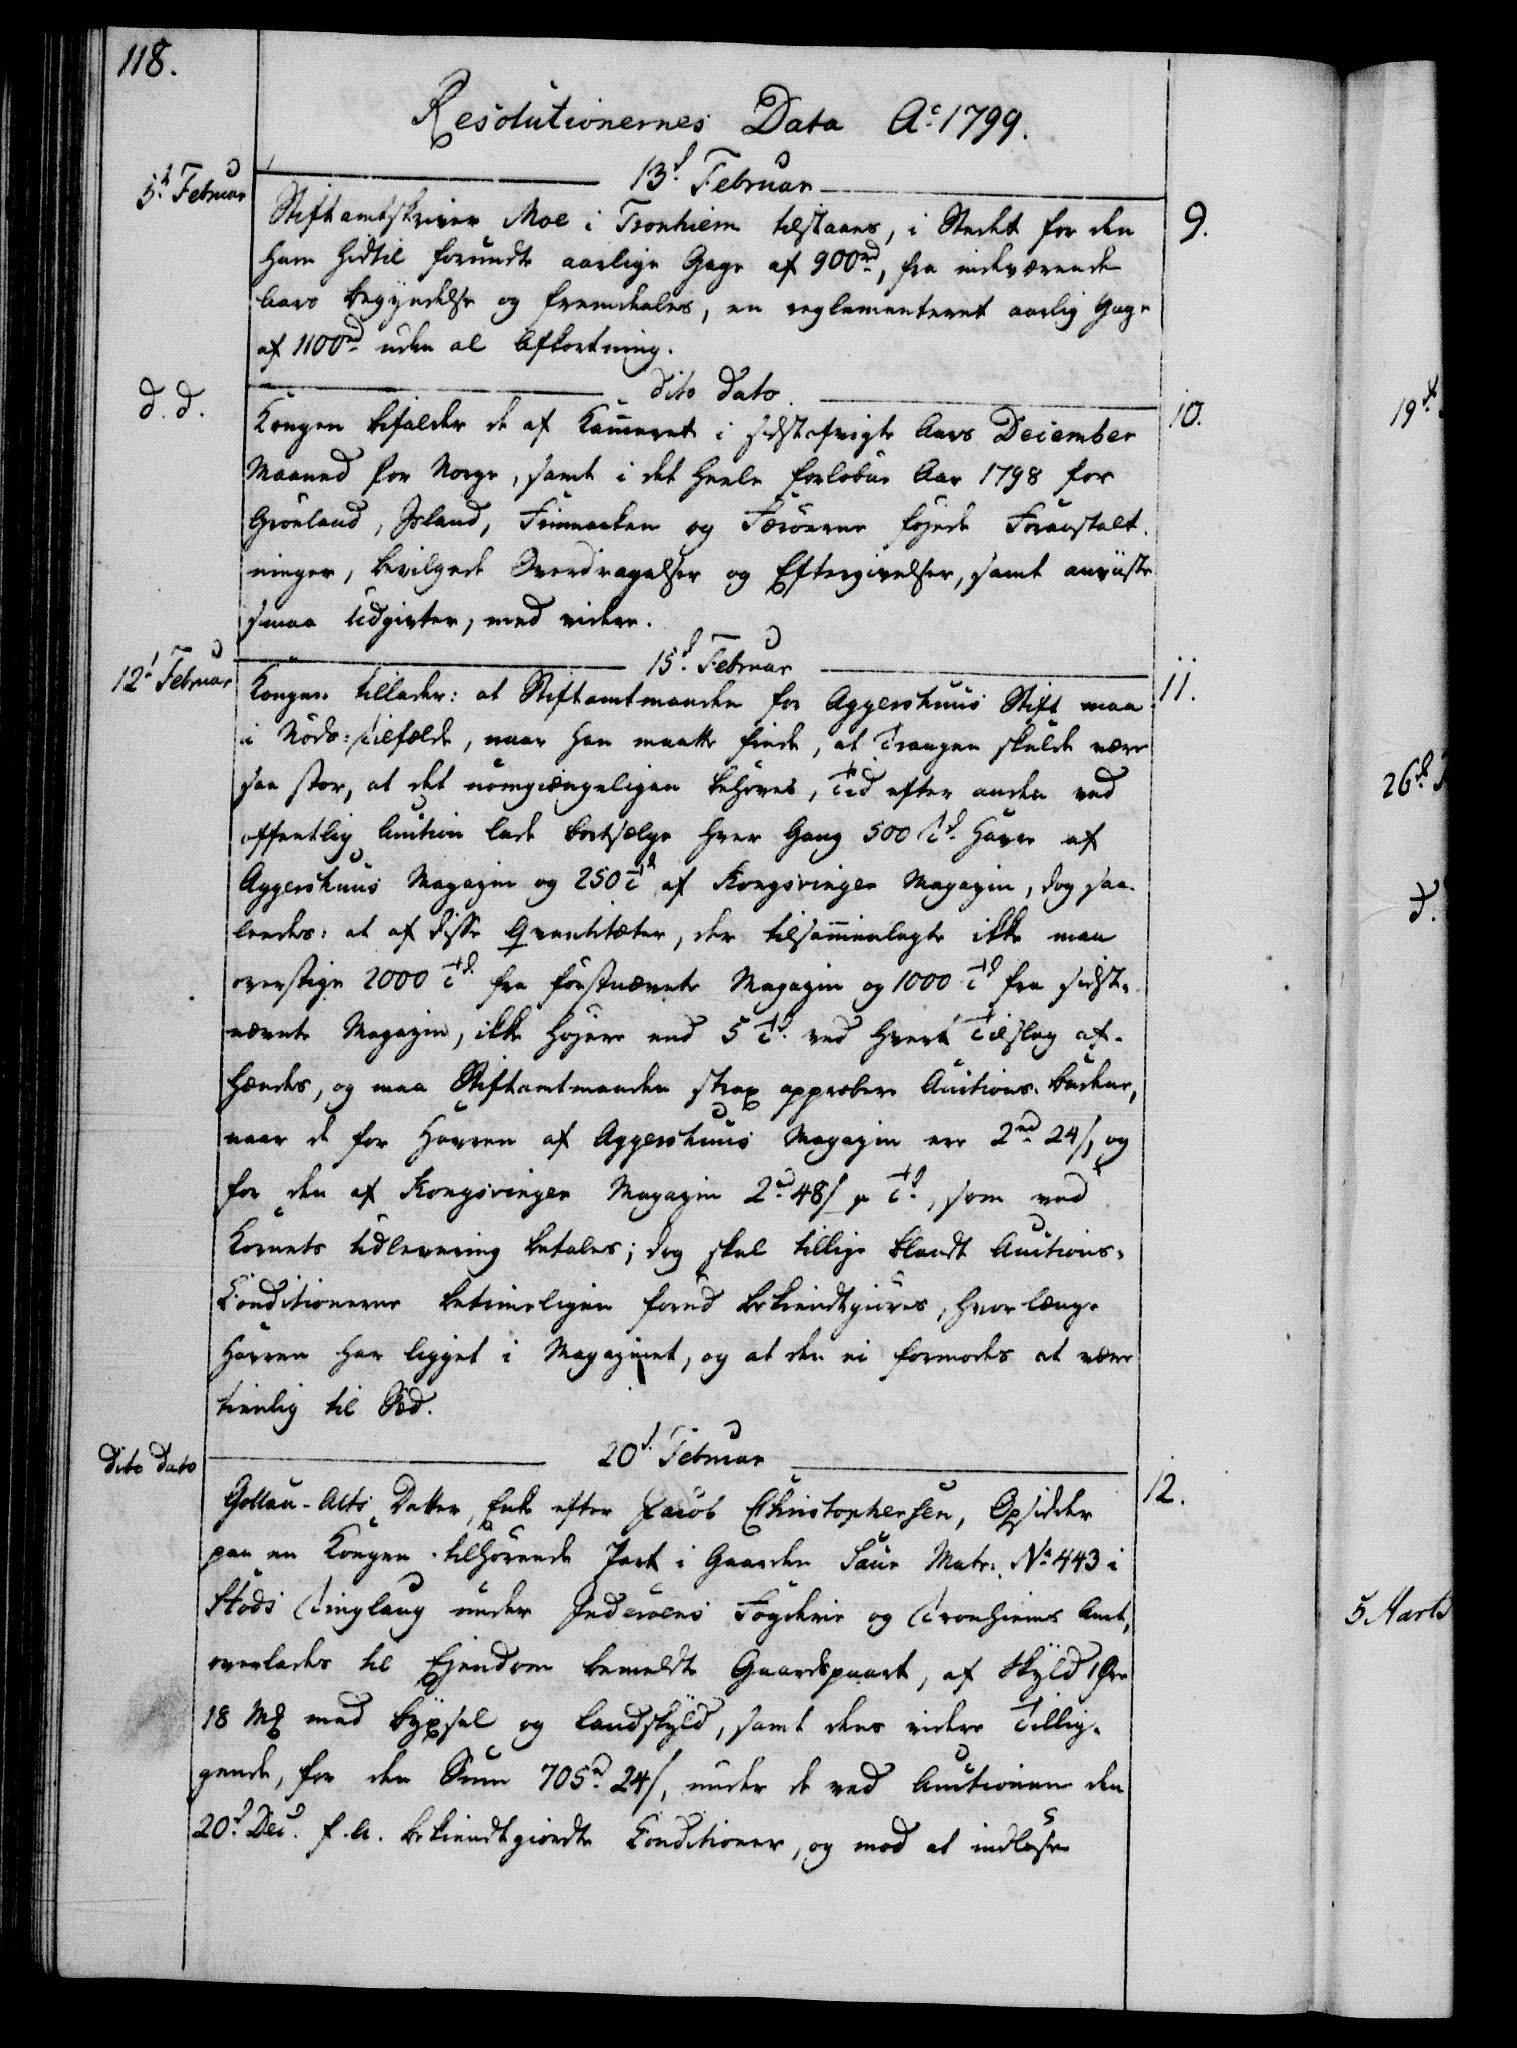 118.
Resolutionernes Data Ao 1799.
5t Februar
13d Februar
9.
Stiftamtskriver Moe i Tronhiem tilstaaes, i Stedet for den
ham hidtil forundte aarlige Gage af 900rd, fra indeværende
Aars Begyndelse og fremdeeles, en reglementeret aarlig Gage
af 1100rd uden al Afkortning.
d. d.
dito dato.
10.
Kongen bifalder de af Kammeret i sidstafvigte Aars December
Maaned for Norge, samt i det heele forløbne Aar 1798 for
Grönland, Island, Finmarken og Færöerne föjede Foranstalt-
ninger, bevilgede Overdragelser og Eftergivelser, samt anviiste
smaa Udgivter, med videre.
12t Februar
15d Februar
11.
Kongen tillader: at Stiftamtmanden for Aggershuus Stift maa
i Nöds-Tilfælde, naar han maatte finde, at Trangen skulde være
saa stor, at det uomgiængeligen behöves, Tid efter anden ved
offentlig Auction lade bortsælge hver Gang 500 Td. Havre af
Aggershuus Magazin og 250 Td af Kongsvinger Magazin, dog saa-
leedes: at af disse Qvantiteter, der tilsammenlagte ikke maa
overstige 2000 Td. fra förstnævnte Magazin og 1000 Td fra sidst-
nævnte Magazin, ikke höjere end 5 Td. ved hvert Tilslag af-
hændes, og maa Stiftamtmanden strax approbere Auctions-Budene,
naar de for Havren af Aggershuus Magazin ere 2rd 24/, og
for den af Kongsvinger Magazin 2rd 48/ pr Td, som ved
Kornets Udlevering betales; dog skal tillige blandt Auctions-
Conditionerne betimeligen forud bekiendtgiöres, hvorlænge
Havren har ligget i Magazinet, og at den ei formodes at være
tienlig til Sæd.
dito dato
20d. Februar
12.
Gollau-Alts Datter, Enke efter Jacob Christophersen, Opsidder
paa en Kongen tilhörende Part i Gaarden Saur Matr: No 443 i
Stöds Tinglaug under Inderöens Fogderie og Tronhiems Amt,
overlades til Ejendom bemeldte Gaardspaart, af Skyld 1 Öre
18 Mk med Bÿxsel og Landskyld, samt dens videre Tillig-
gende, for den Sum 705rd 24/, under de ved Auctionen den
20d Dec. f. A. bekiendtgiordte Conditioner, og mod at indlöse
19de
26de
d.
5 Marts